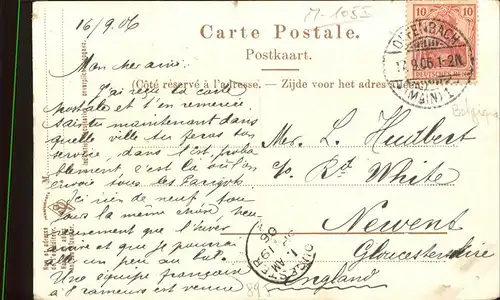 16/9/06
M-1055
Carte Postale.
Postkaart.
(Côté réservé à l'adresse. — Zijde voor het adres
10
10
OFFENBACH
.9.06.1-2N.
(MAIN) 1
Belgique
Mon cher ami.
J'ai reçu ta carte
postale et t'en remercie.
Sais tu maintenant dans
quelle ville tu feras ton
service, dans l'est. proba
blement, c'est là où l'on
envoie tous les
Ici rien de neuf, tou
jours la même chose, heu
reusement que l'hiver
arrive et que je pourrai
aller un peu au bal
Une équipe française
à 8 rameurs est venue
Mr. L. Huilbert
c/o Rd White
Newent
Gloucestershire
England
AM
SP 19
06
895